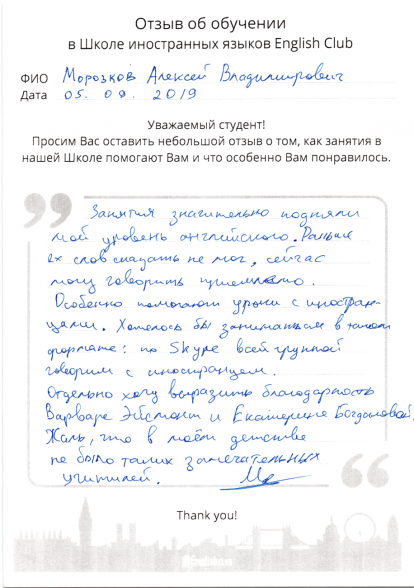 Отзыв об обучении
в Школе иностранных языков English Club
ФИО Морозков Алексей Владимирович
Дата 05. 09. 2019
Уважаемый студент!
Просим Вас оставить небольшой отзыв о том, как занятия в
нашей Школе помогают Вам и что особенно Вам понравилось.
Занятия значительно подняли
мой уровень английского. Раньше
2х слов сказать не мог, сейчас
могу говорить приемлемо.
Особенно помогают уроки с иностран-
цами. Хотелось бы заниматься в таком
формате: по Skype всей группой
говорим с иностранцем.
Отдельно хочу выразить благодарность
Варваре и Екатерине Богдановой.
Жаль, что в моём детстве
не было таких замечательных
учителей.
Thank you!